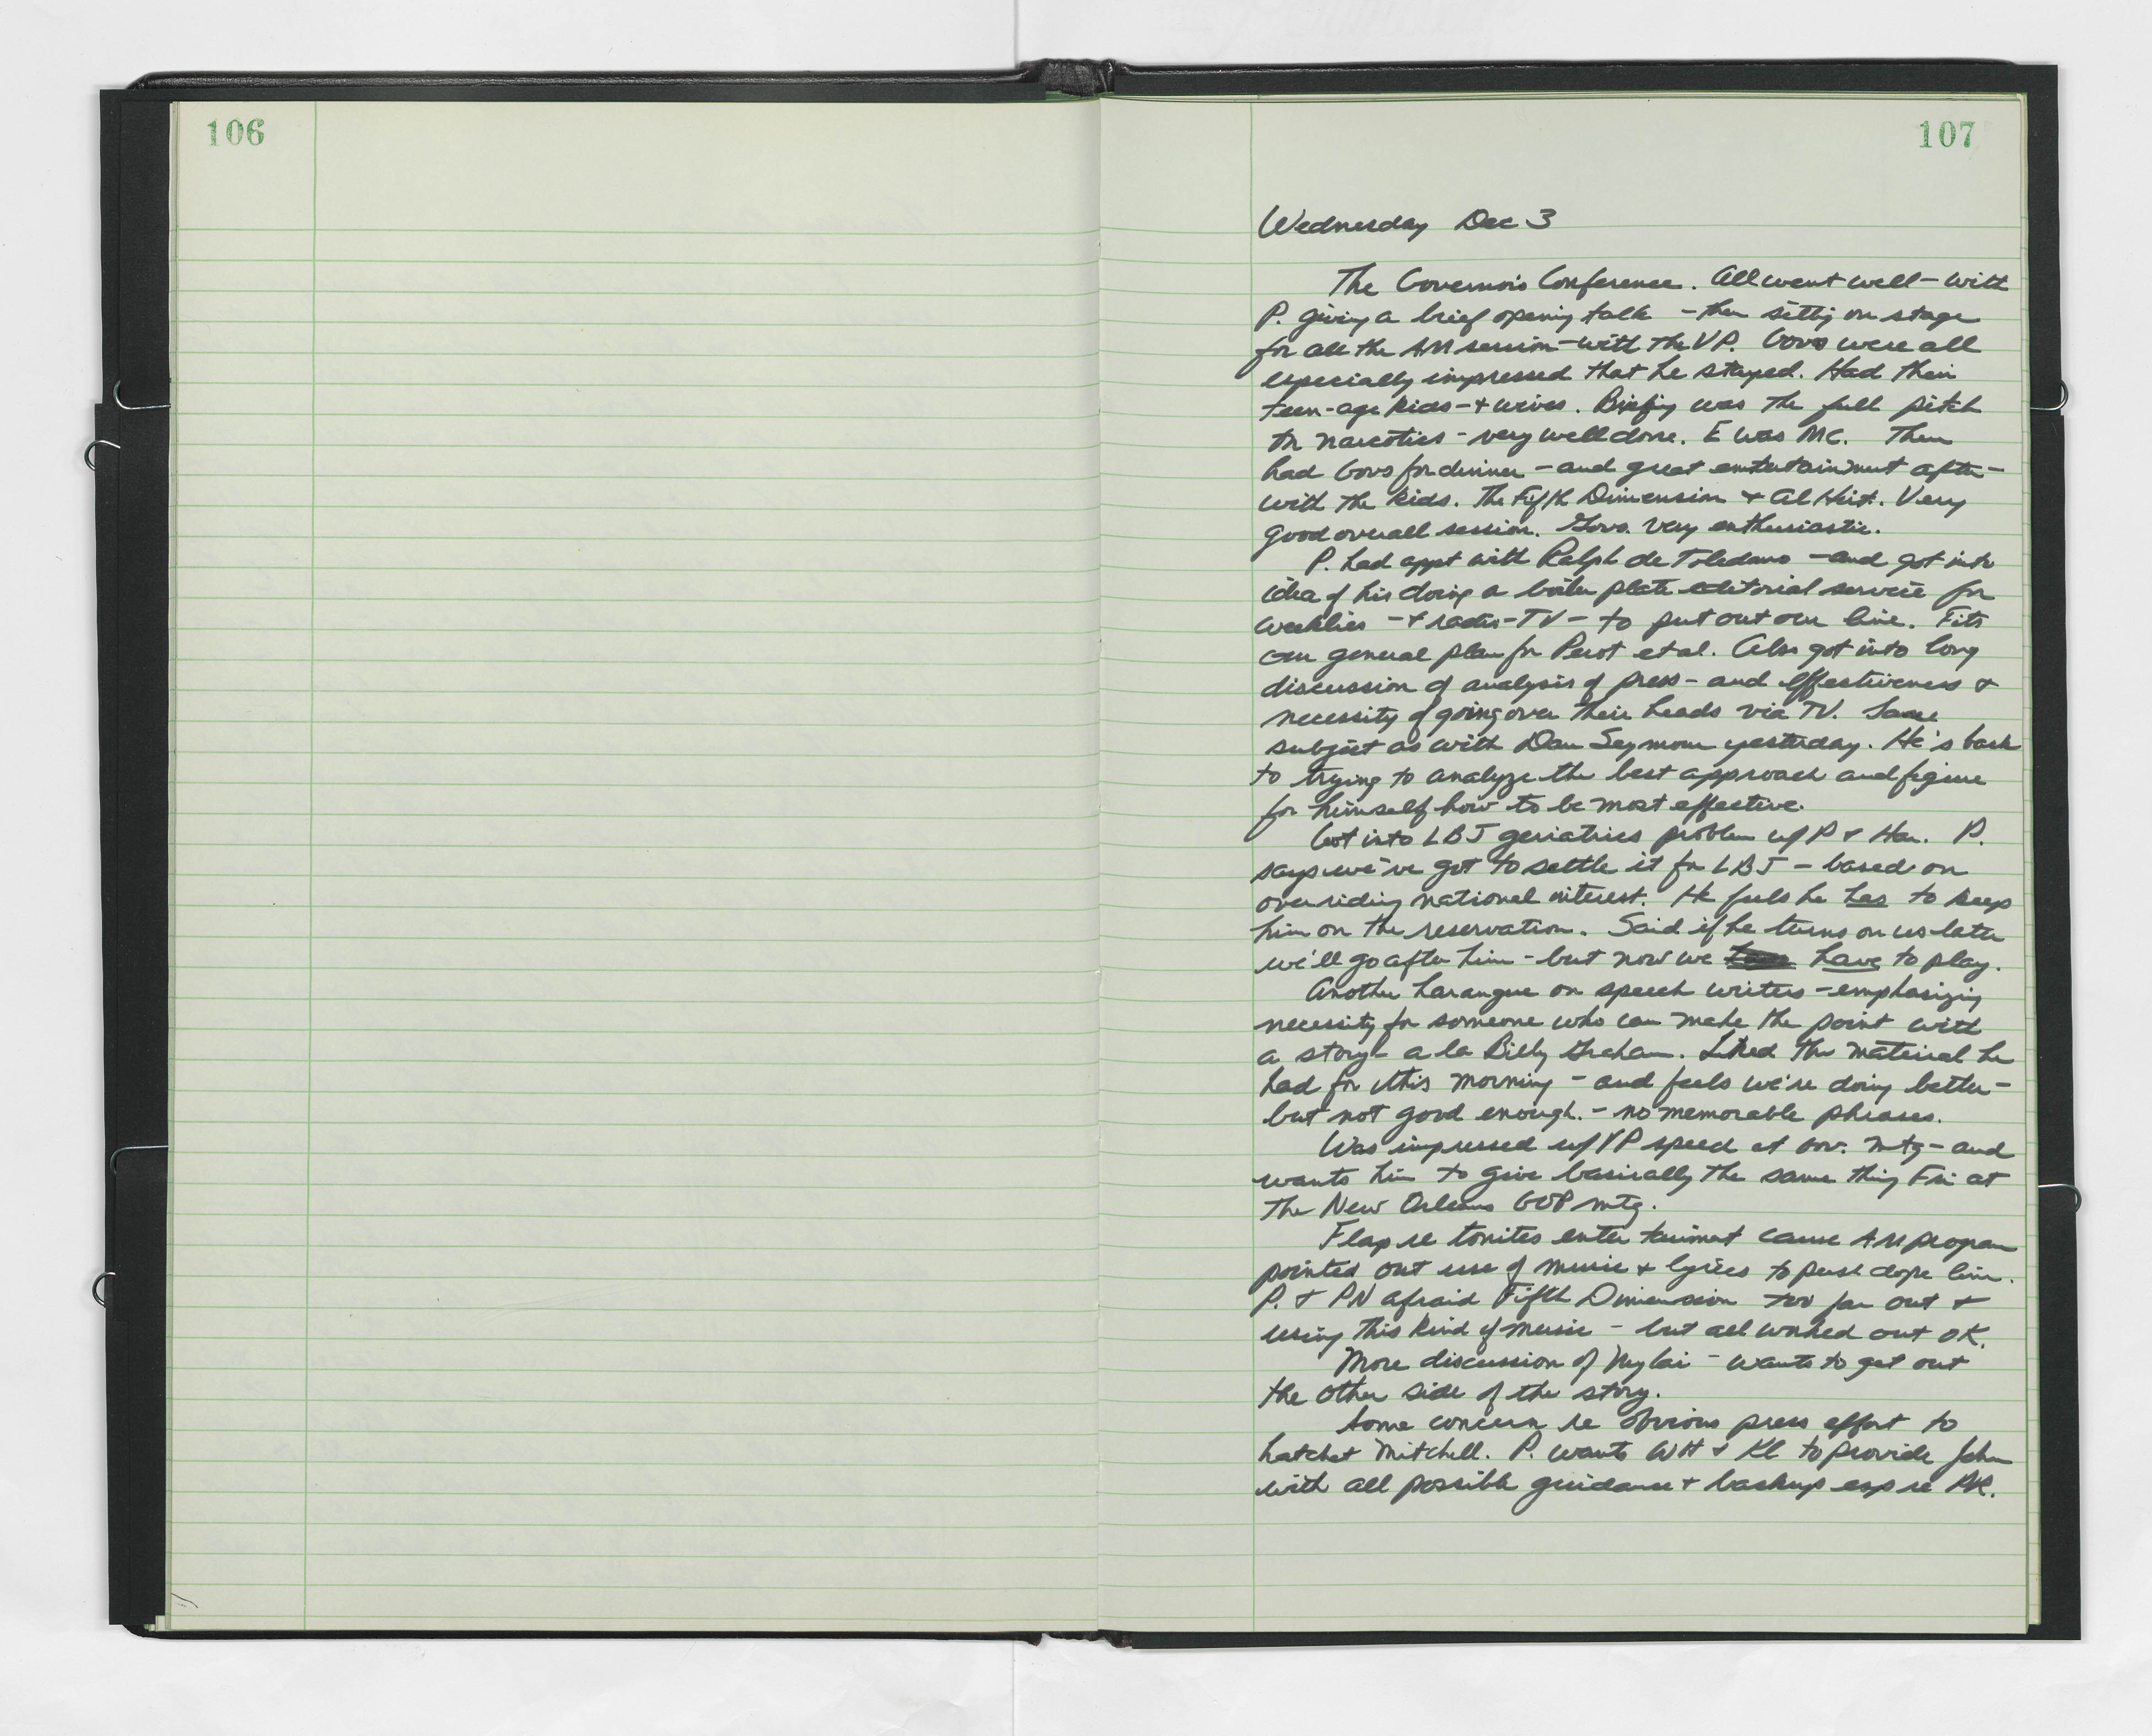 106
107
Wednesday Dec 3
The Governors Conference. All went well - with
P. giving a brief opening talk - then sitting on stage
for all the AM session - with the VP. Govs were all
especially impressed that he stayed. Had their
teen-age kids - + wives. Briefing was the full pitch
on narcotics - very well done. E was MC. Then
had Govs for dinner - and great entertainment after -
with the kids. The Fifth Dimension + Al Hirt. Very
good overall session. Govs. very enthusiastic.
P. had appt with Ralph de Toledano - and got into
idea of his doing a boiler plate editorial service for
weeklies - + radio-TV - to put out our line. Fits
our general plan for Perot et al. Also got into long
discussion of analysis of press - and effectiveness +
necessity of going over their heads via TV. Same
subject as with Dan Seymour yesterday. He's back
to trying to analyze the best approach and figure
for himself how to be most effective.
Got into LBJ geriatrics problem w/ P + Har. P.
says we've got to settle it for LBJ - based on
overriding national interest. He feels he has to keep
him on the reservation. Said if he turns on us later
we'll go after him - but now we have to play.
Another harangue on speech writers - emphasizing
necessity for someone who can make the point with
a story - a la Billy Graham. Liked the material he
had for this morning - and feels we're doing better -
but not good enough. - no memorable phrases.
Was impressed w/ VP speed at Gov. mtg - and
wants him to give basically the same thing Fri at
the New Orleans GOP mtg.
Flap re tonites entertainment cause AM program
pointed out use of music + lyrics to push dope line.
P. + PN afraid Fifth Dimension too far out +
using this kind of music - but all worked out OK.
More discussion of Mylai - wants to get out
the other side of the story.
Some concern re obvious press effort to
hatchet Mitchell. P. wants WH + Kl to provide John
with all possible guidance + backup esp re PR.